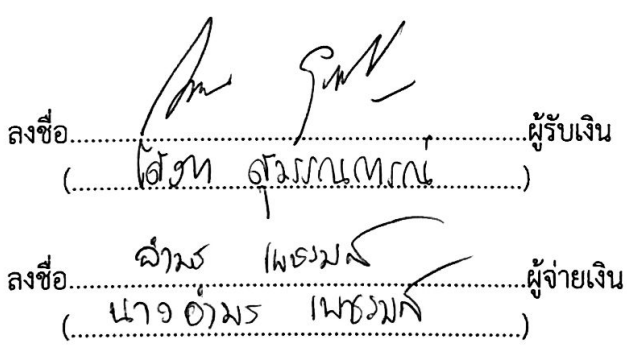 ลงชื่อ.....................ผู้รับเงิน
(..... สุวรรณการณ์ .....)
ลงชื่อ..... อำพร เพชรมล .....ผู้จ่ายเงิน
(..... นางอำพร เพชรมล .....)